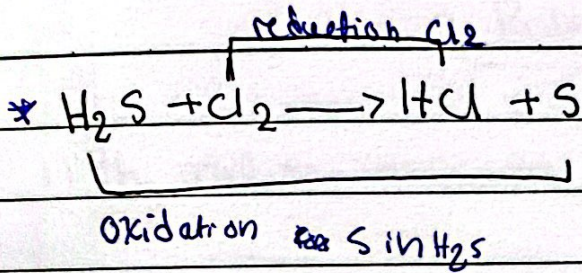 reduction Cl2
* H2S + Cl2 ⟶ HCl + S
Oxidation S in H2S